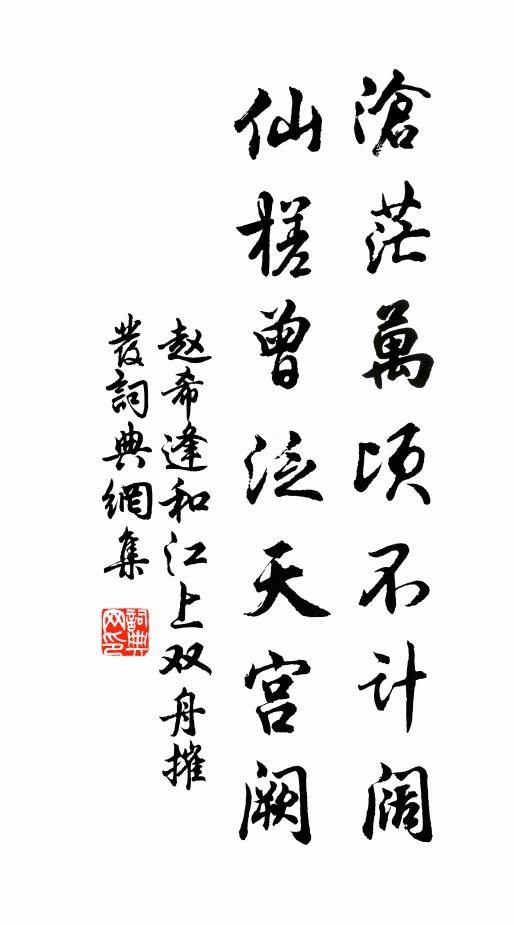 滄茫萬頃不计阔
仙槎曾泛天宫阙
赵希逢和江上双舟摧
發詞典網集
詞典網印